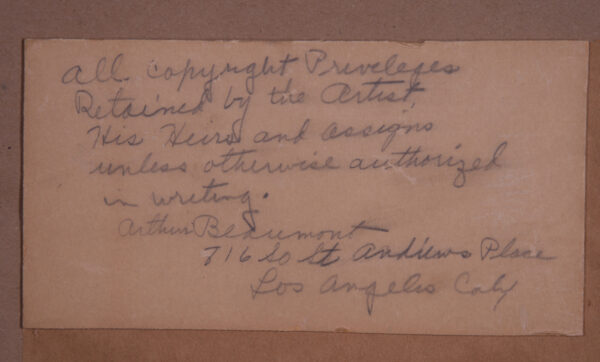 All copyright Priveleges
Retained by the Artist,
His Heirs and assigns
unless otherwise authorized
in writing.
Arthur Beaumont
716 So St Andrews Place
Los Angeles Calif